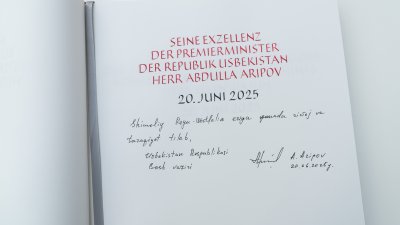 SEINE EXZELLENZ
DER PREMIERMINISTER
DER REPUBLIK USBEKISTAN
HERR ABDULLA ARIPOV
20. JUNI 2025
Shimoliy Reyn-Vestfalia ... va
taraqqiyot tilab,
Uzbekistan Respublikasi
Bosh vaziri
A. Aripov
20.06.2025y.